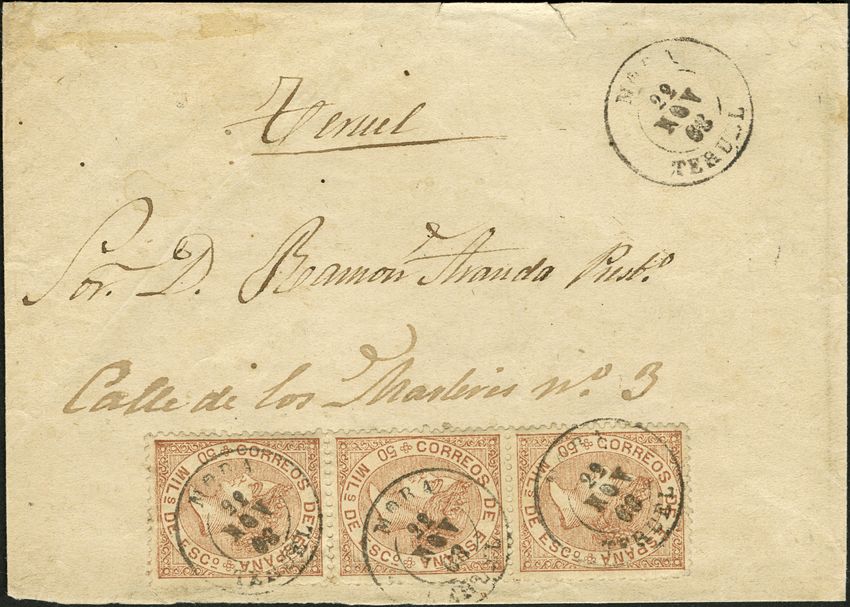 MORA
22
NOV
68
TERUEL
Teruel
Sor. D. Ramon Aranda Presb.º
Calle de los Martires nº. 3
CORREOS DE ESPAÑA
50 MILS DE ESCO
MORA
22
NOV
68
TERUEL
CORREOS DE ESPAÑA
50 MILS DE ESCO
MORA
22
NOV
68
TERUEL
CORREOS DE ESPAÑA
50 MILS DE ESCO
22
NOV
68
TERUEL